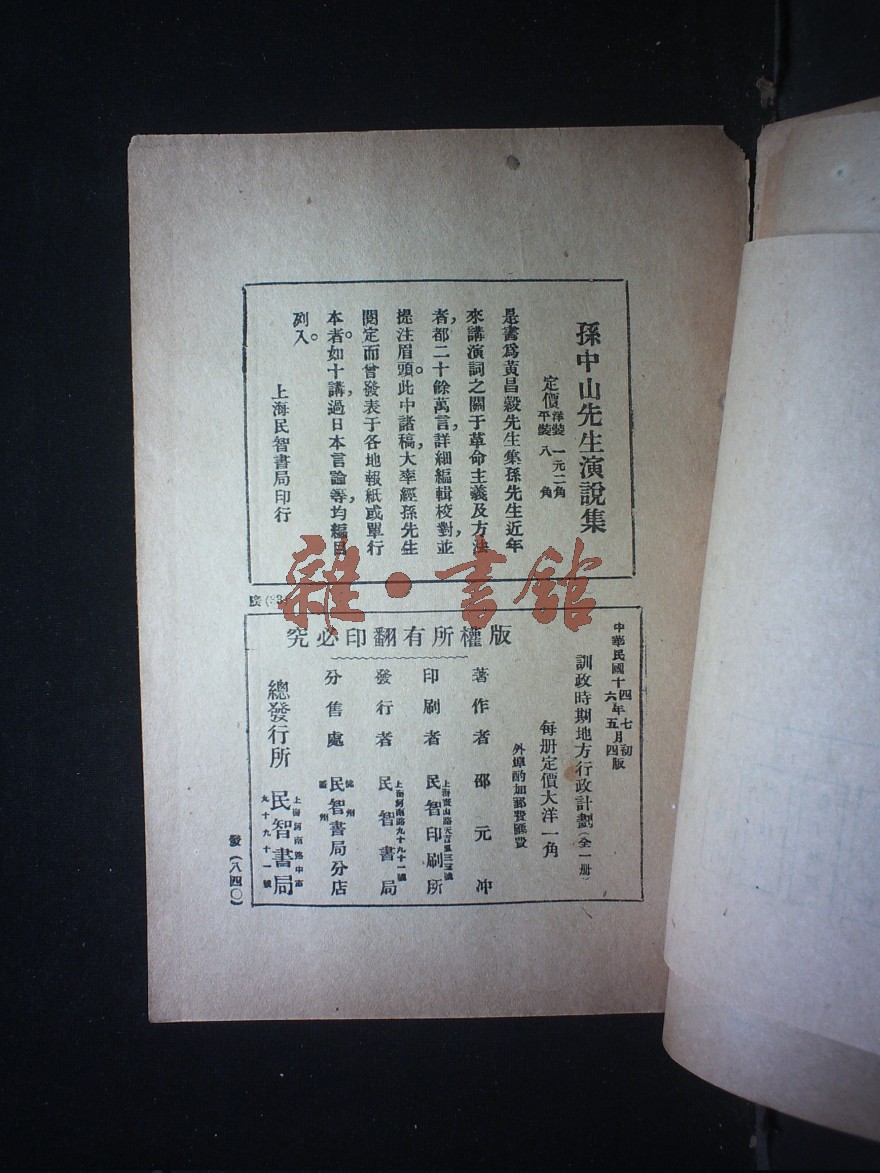 孫中山先生演說集
定價 洋裝 一元二角
平裝 八角
是書爲黃昌穀先生集孫先生近年
來講演詞之關于革命主義及方法
者，都二十餘萬言，詳細編輯校對，並
提注眉頭。此中諸稿，大率經孫先生
閱定而曾發表于各地報紙或單行
本者。如十講，過日本言論等，均編目
列入。
上海民智書局印行
雜·書館
版權所有翻印必究
中華民國十四年七月初版
六年五月四版
訓政時期地方行政計劃（全一册）
每册定價大洋一角
外埠酌加郵費匯費
著作者 邵元冲
印刷者 民智印刷所
發行者 民智書局
上海河南路九十九十一號
分售處 民智書局分店
總發行所 民智書局
上海河南路中市
九十九十一號
發（八四〇）